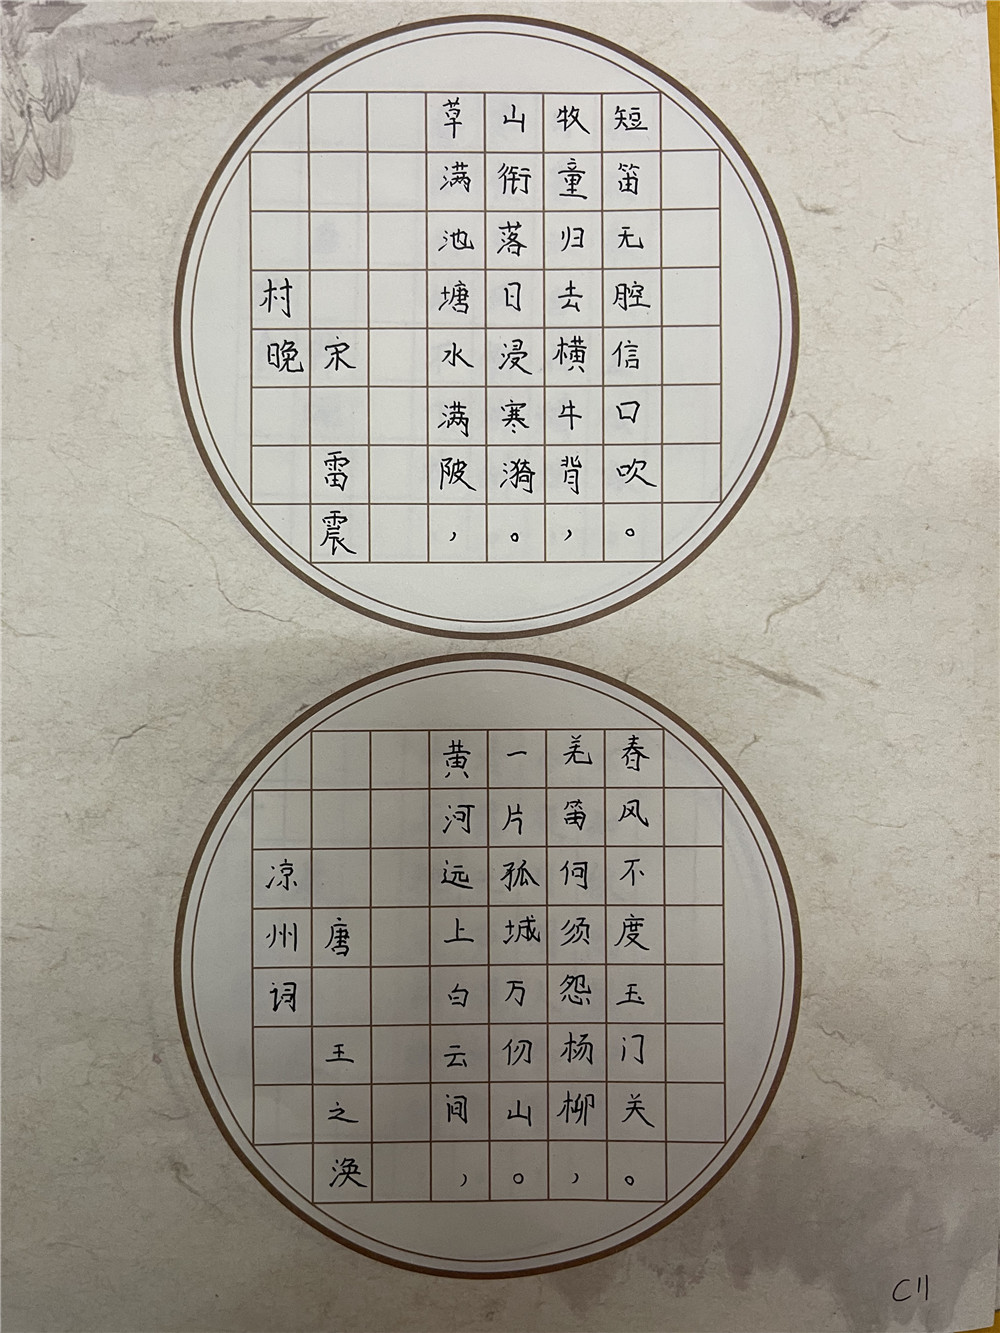 村晚
宋 雷震
草满池塘水满陂，
山衔落日浸寒漪。
牧童归去横牛背，
短笛无腔信口吹。
凉州词
唐 王之涣
黄河远上白云间，
一片孤城万仞山。
羌笛何须怨杨柳，
春风不度玉门关。
C11